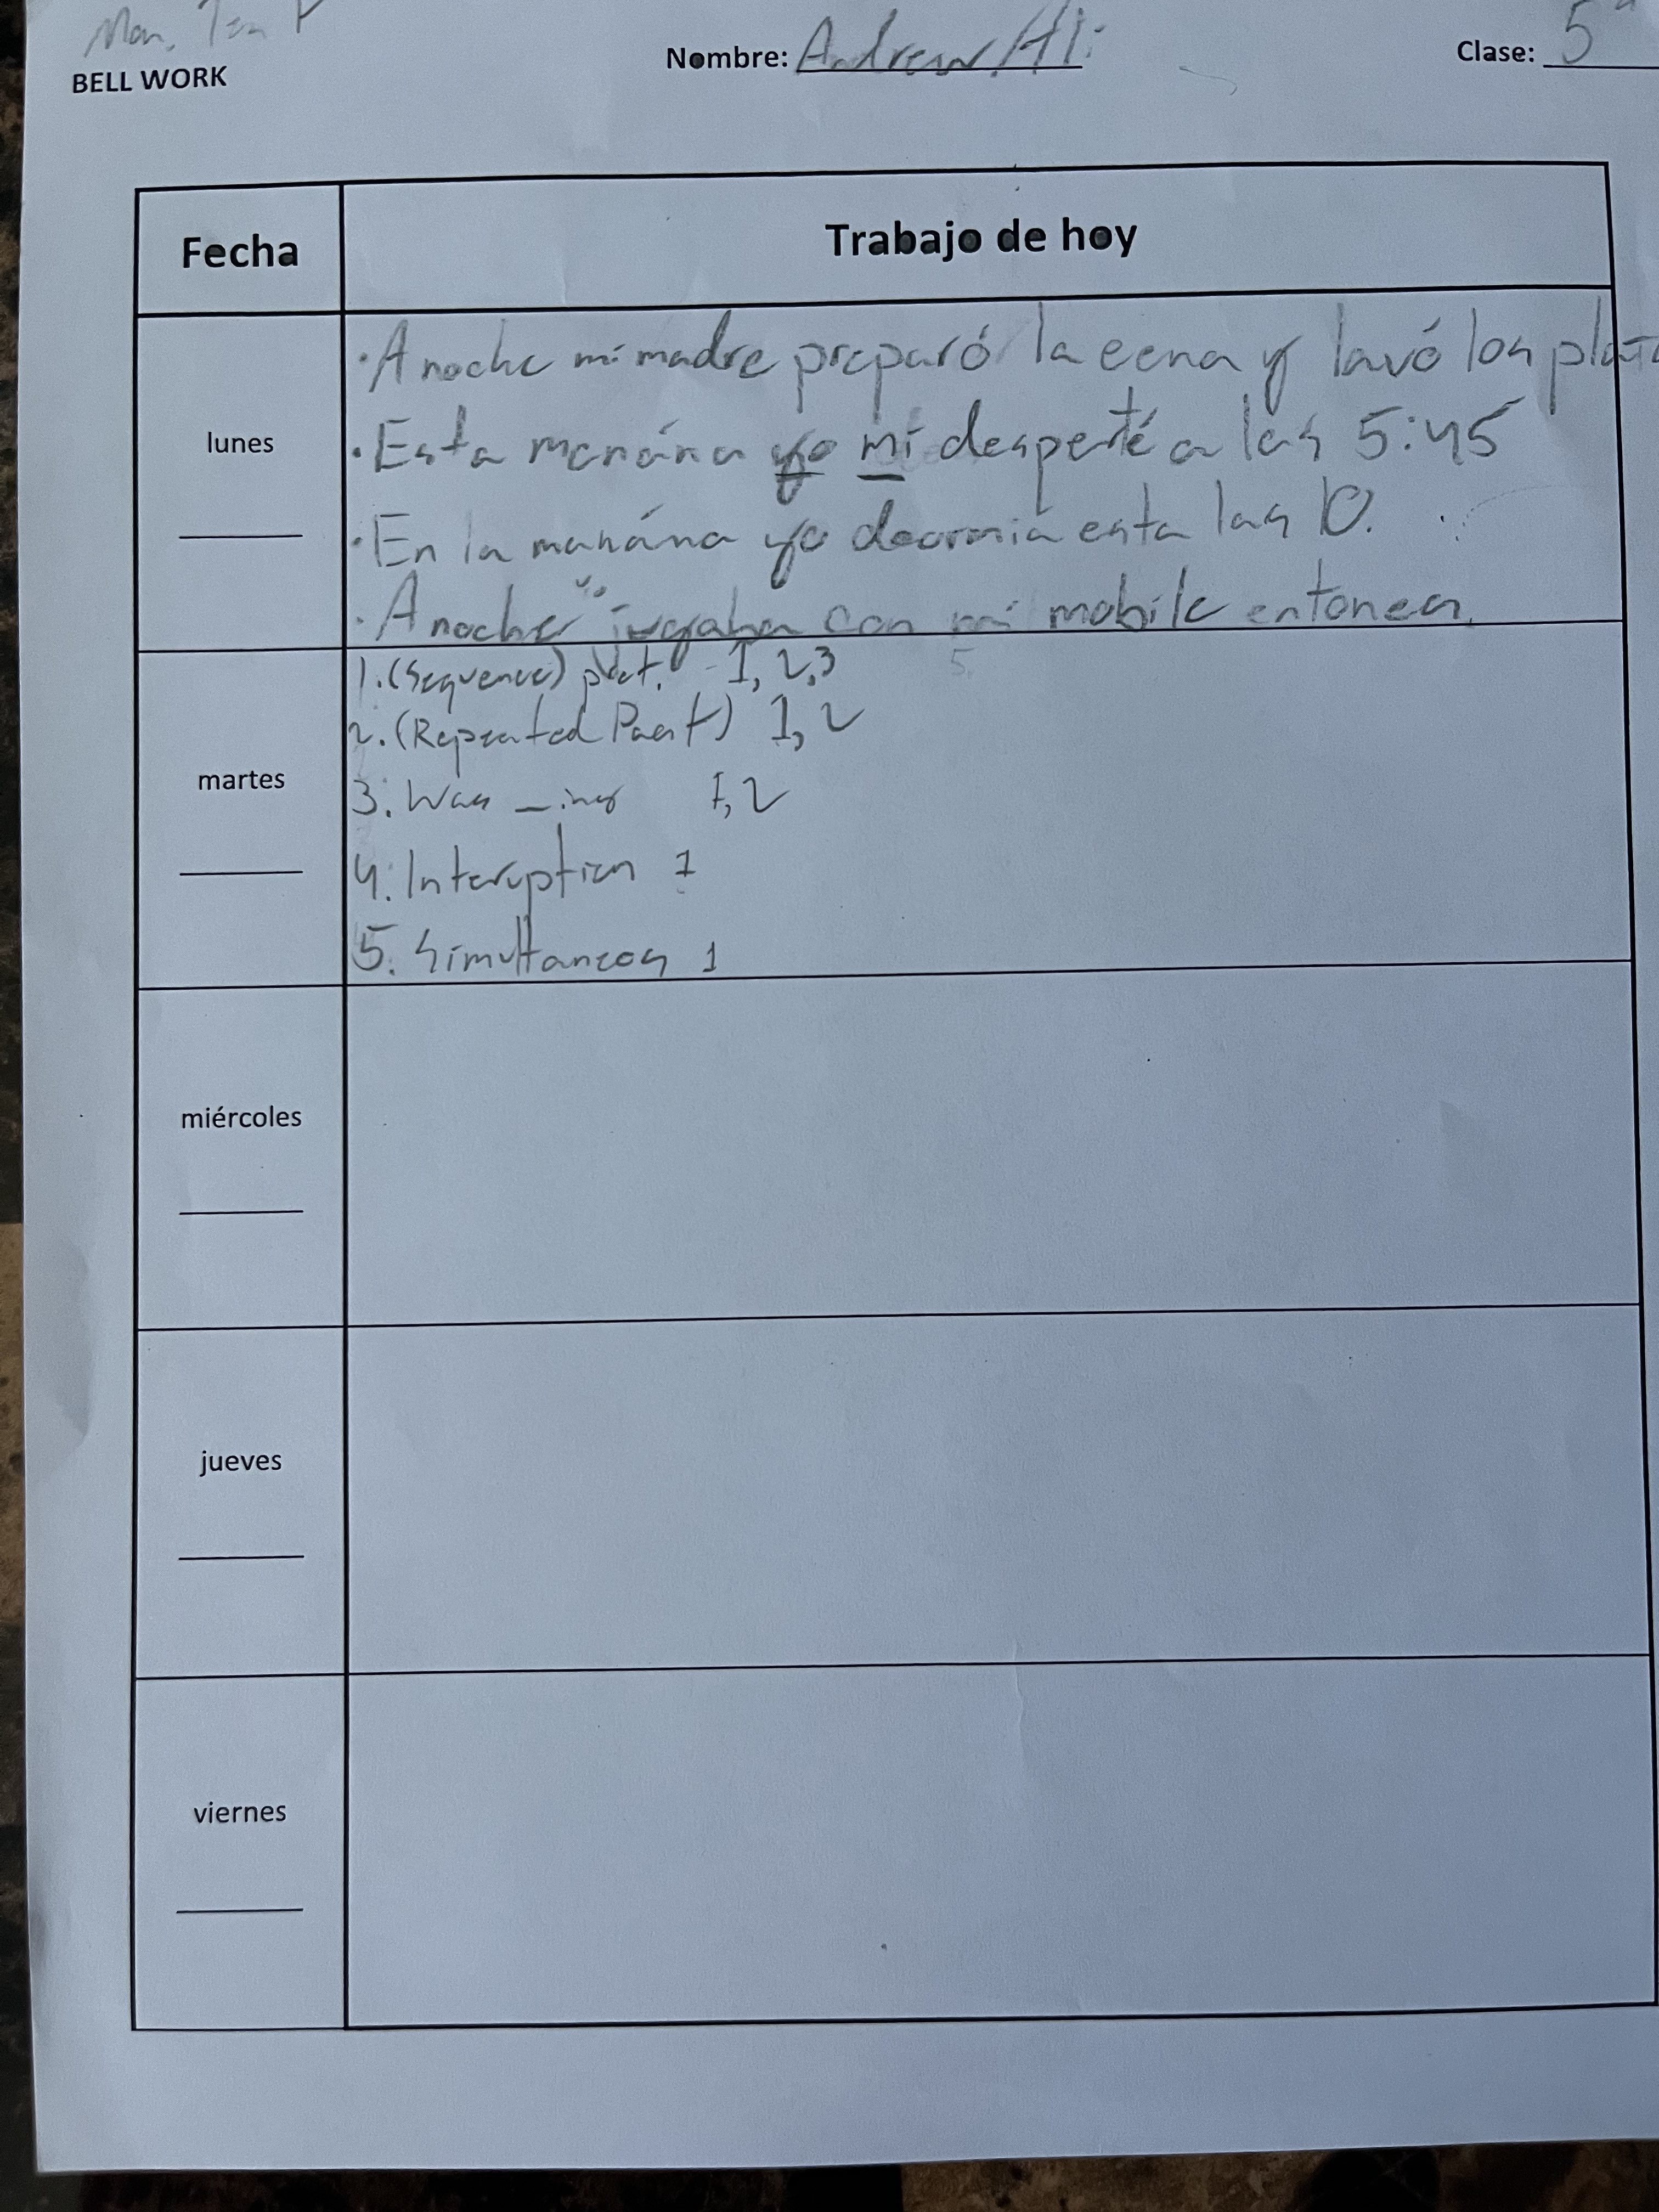 Mon,
BELL WORK
Nombre: Andrew Ali
Clase: 5
Fecha
Trabajo de hoy
lunes
· Anoche mi madre preparó la cena y lavó los plato
· Esta manána yo mi desperté a las 5:45
· En la manána yo deormia esta las 10.
· Anoche yo jugaba con mi mobile entonces.
martes
1. (Sequence) pret. - 1, 2, 3
5.
2. (Repeated Past) 1, 2
3. Was _ing 1, 2
4. Interuption 1
5. Simultaneos 1
miércoles
jueves
viernes